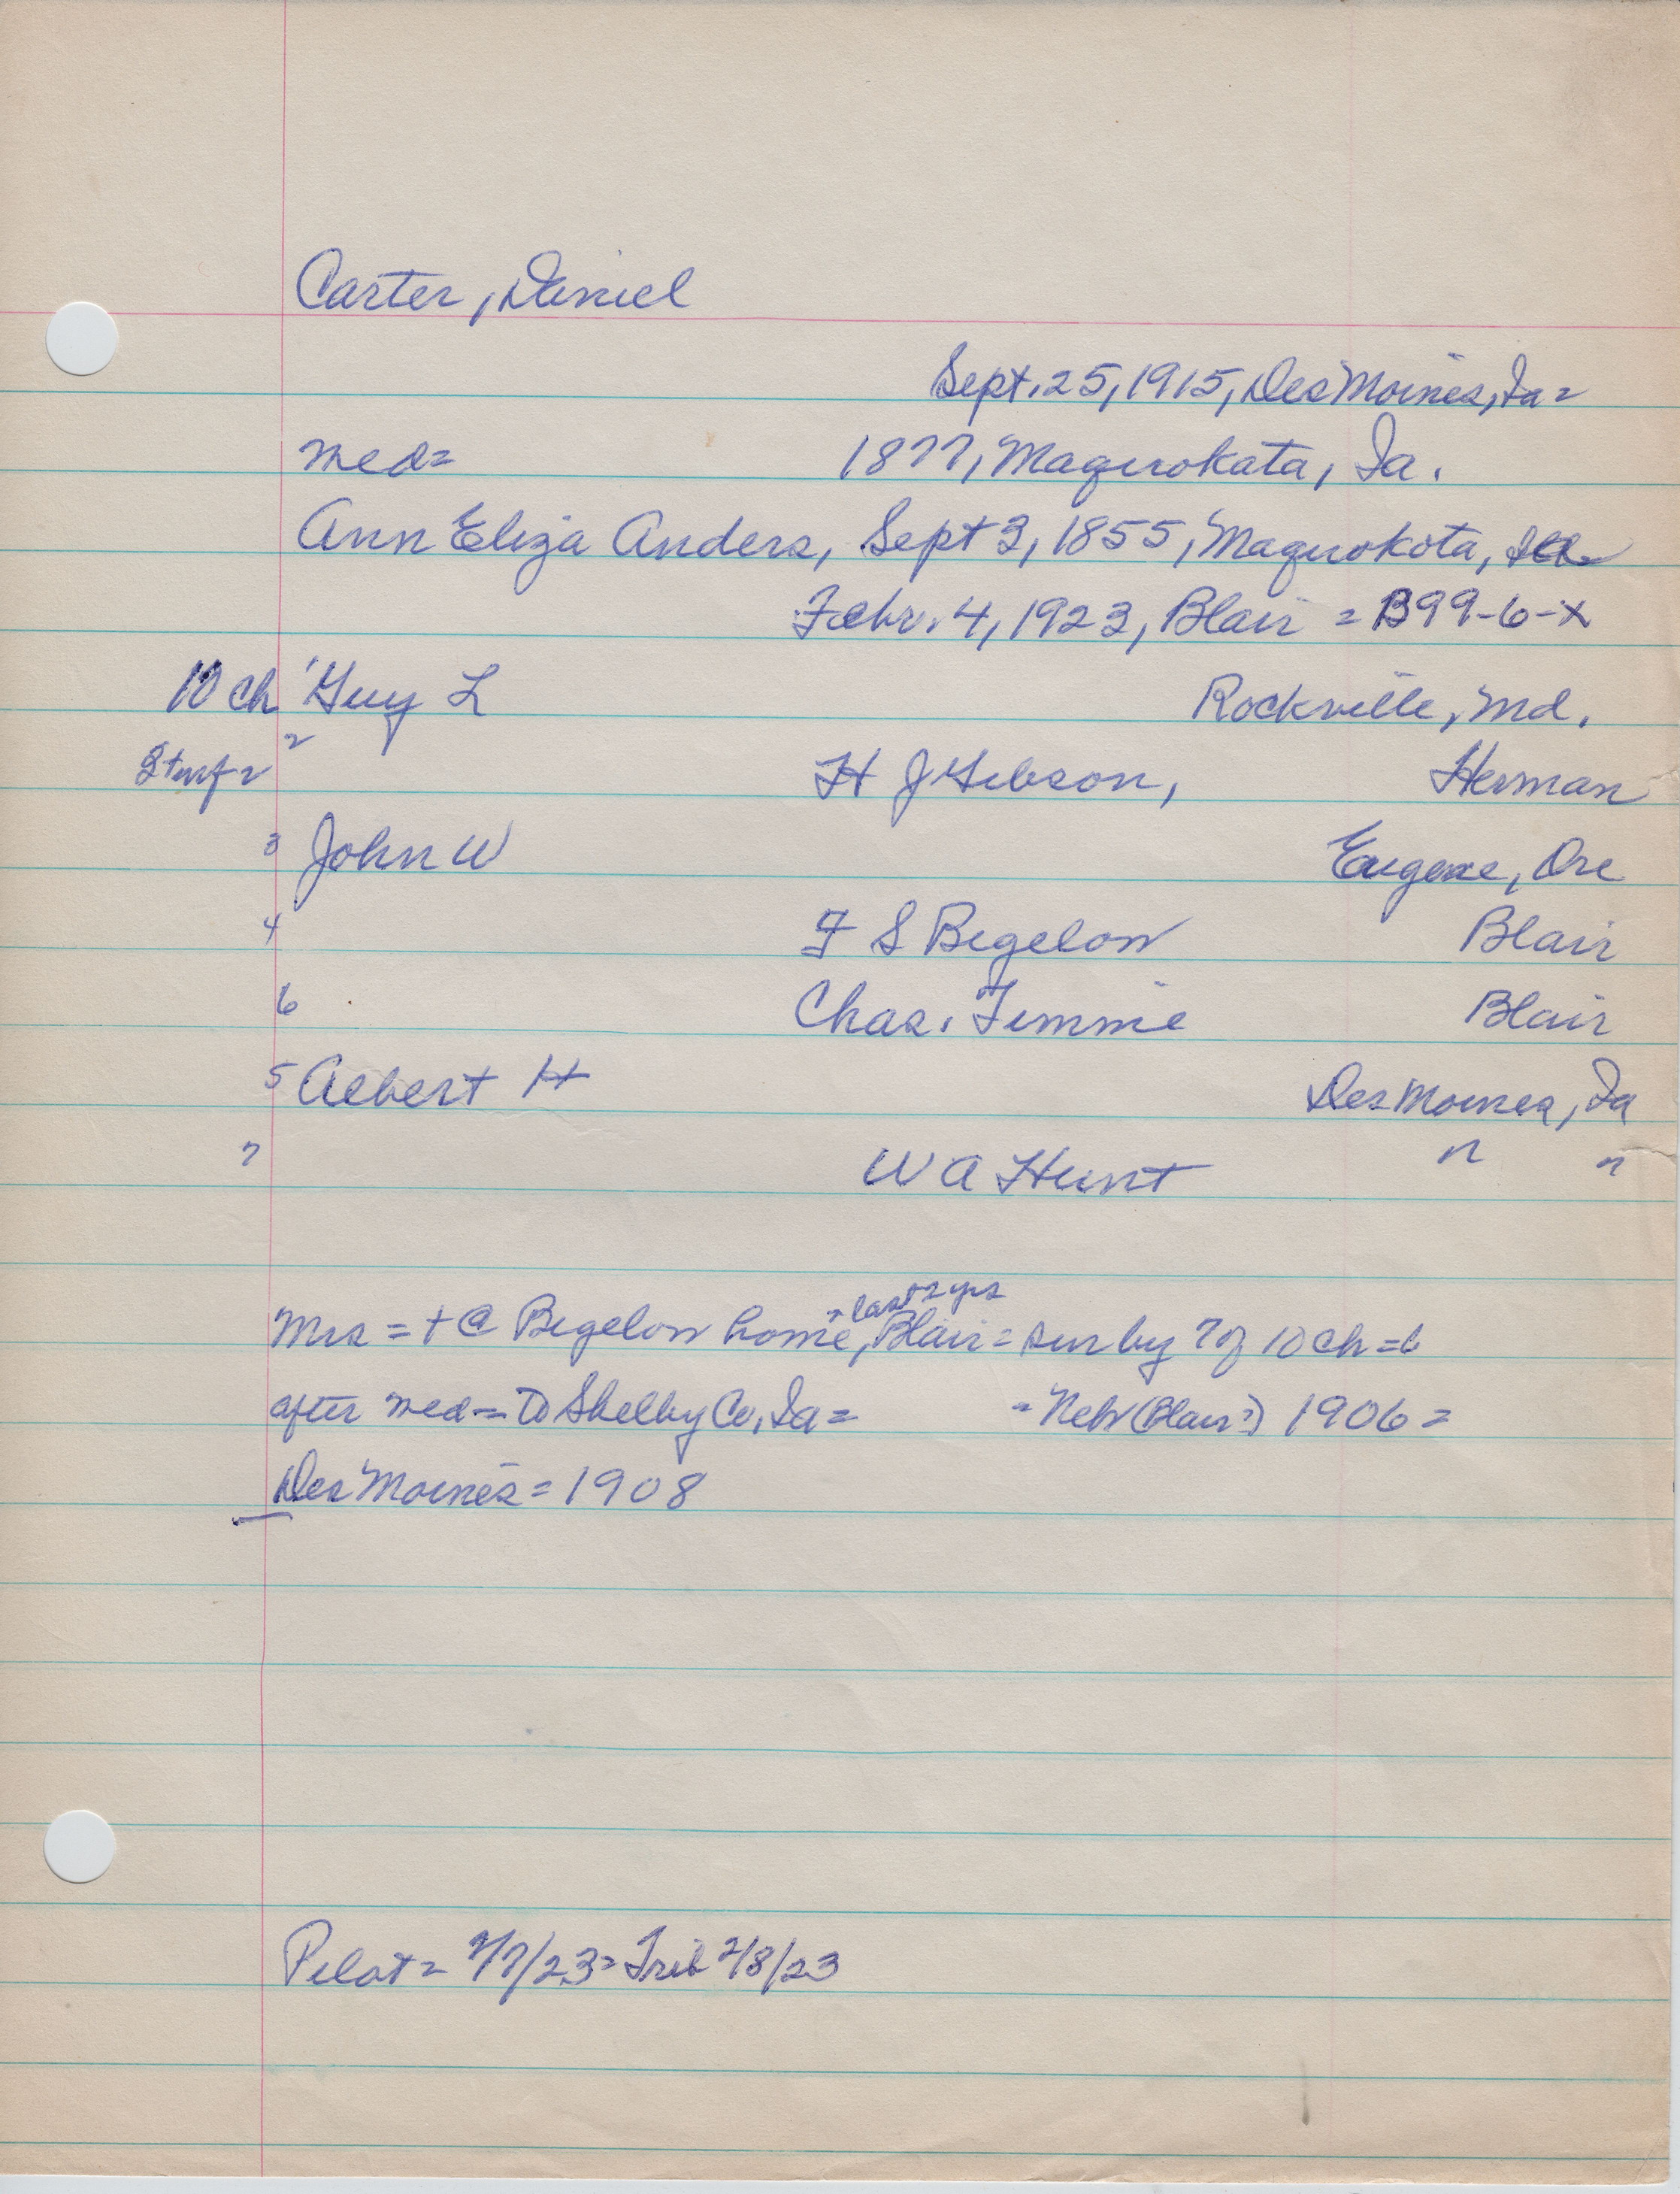 Carter, Daniel
Sept. 25, 1915, Des Moines, Ia =
med= 1877, Maquokata, Ia.
Ann Eliza Anders, Sept 3, 1855, Maquokota,
Febr. 4, 1923, Blair = B99-6-X
10 ch 1 Guy L Rockville, Md.
2 H J Gibson, Herman
3 John W Eugene, Ore
4 F S Bigelow Blair
6 Chas. Timmie Blair
5 Albert H Des Moines, Ia
7 W A Hunt " "
- last 2 yrs
Mrs = + @ Bigelow home, Blair = sur by 7 of 10 ch = 6
after med = to Shelby Co, Ia = - Nebr (Blair?) 1906 =
Des Moines = 1908
Pilot = 2/7/23 = Trib 2/8/23